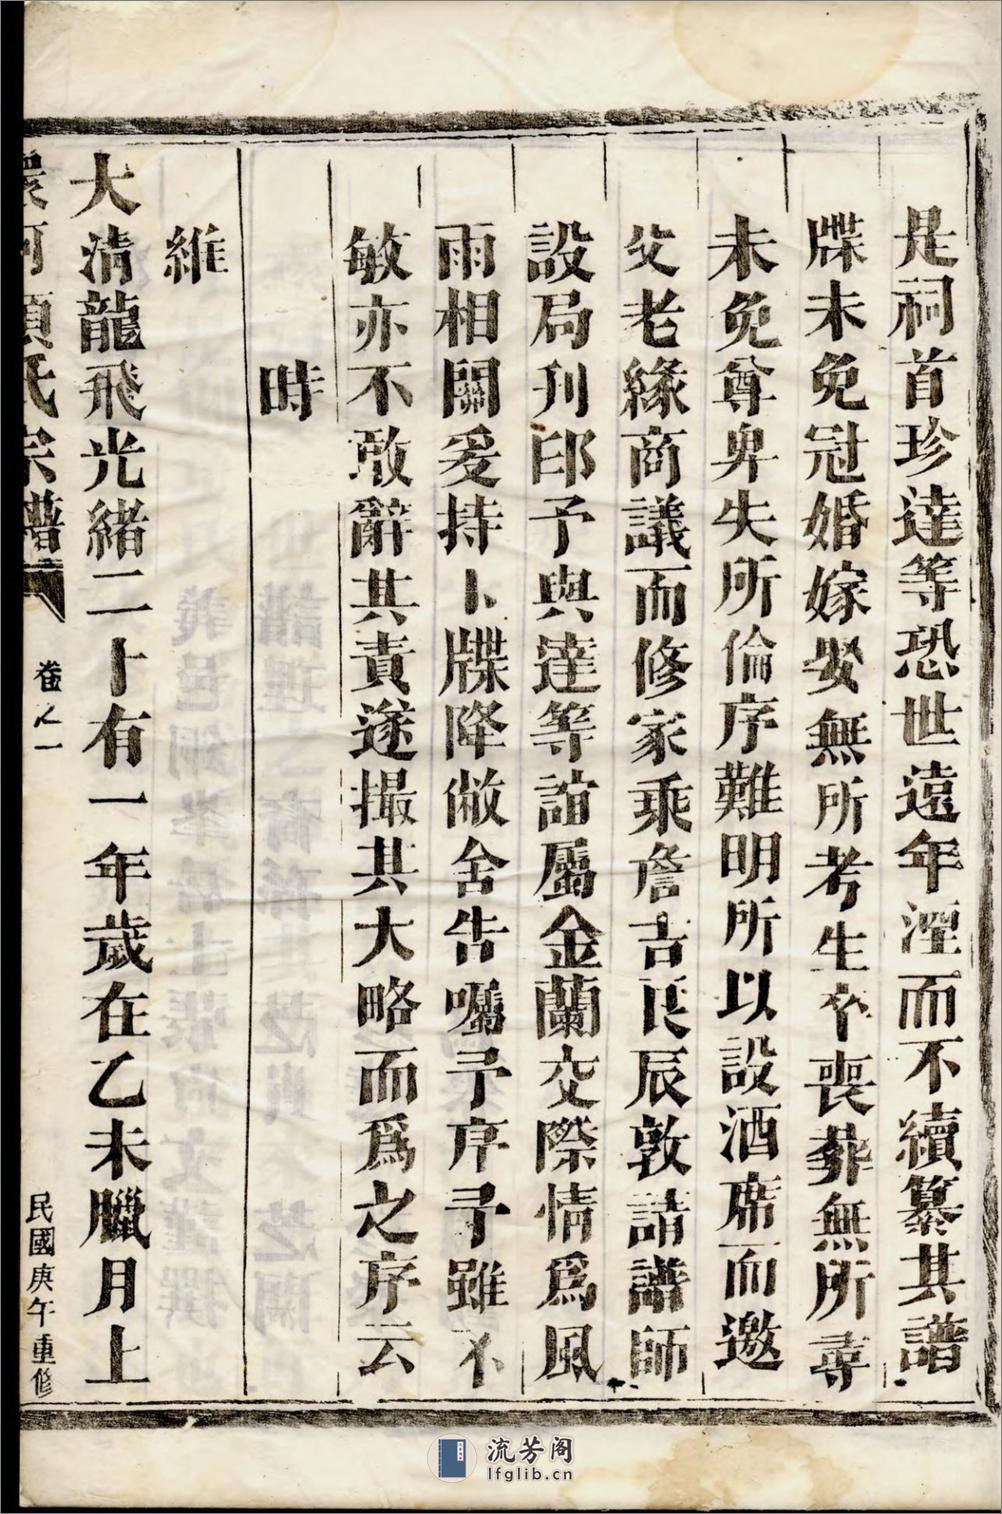 是祠首珍達等恐世遠年湮而不續纂其譜
牒未免冠婚嫁娶無所考生卒喪葬無所尋
未免尊卑失所倫序難明所以設酒席而邀
父老緣商議而修家乘詹吉良辰敦請譜師
設局刋印予與達等誼屬金蘭交際情爲風
雨相關爰持卜牒降敝舍告囑予序予雖不
敏亦不敢辭其責遂撮其大略而爲之序云
時
維
大清龍飛光緒二十有一年歲在乙未臘月上
氏宗譜
卷之一
民國庚午重修
流芳阁
lfglib.cn